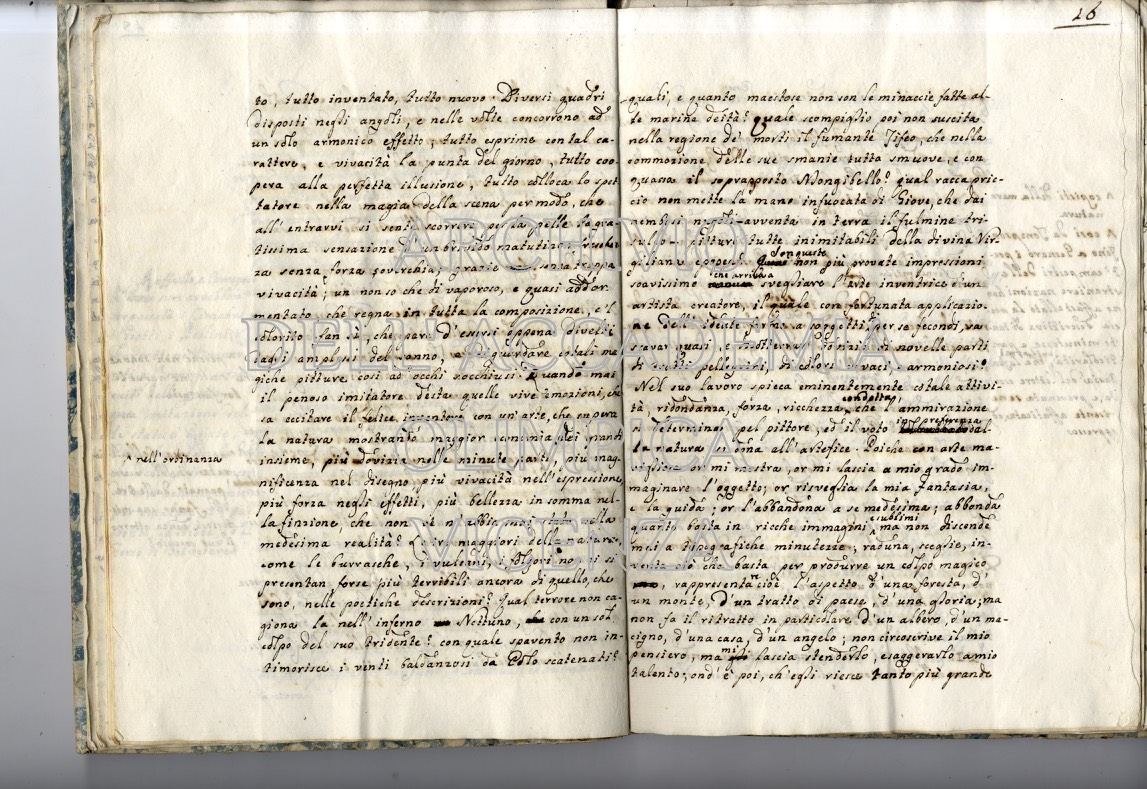 to, tutto inventato, tutto nuovo. Diversi quadri
disposti negli angoli, e nelle volte concorrono ad
un solo armonico effetto; tutto esprime con tal ca-
rattere, e vivacità la punta del giorno, tutto coo-
pera alla perfetta illusione, tutto colloca lo spet-
tatore nella magia della scena per modo, che
all'entrarvi si sente scorrere per la pelle la gra-
tissima sensazione d'un brivido matutino; freschez-
za senza forza soverchia; grazie senza troppa
vivacità; un non so che di vaporoso, e quasi addor
mentato che regna in tutta la composizione, e'l
colorito fan sì, che pare d'essersi appena divelti
dagli amplessi del sonno, e riguardare cotali ma
giche pitture così ad occhi socchiusi. Quando mai
il penoso imitatore desta quelle vive emozioni, che
sa eccitare il felice inventore con un'arte, che supera
la natura mostrando maggior economia dei quanti
^ nell'ordinanza
insieme, più dovizia nelle minute parti, più mag-
nificenza nel disegno, più vivacità nell'espressione,
più forza negli effetti, più bellezza in somma nel-
la finzione, che non v'è nella
medesima realità? Le ire maggiori della natura,
come le burrasche, i vulcani, i folgori non ci si
presentan forse più terribili ancora di quello, che
sono, nelle poetiche descrizioni? Qual terrore non ca-
giona la nell'inferno Nettuno, con un sol
colpo del suo tridente? con quale spavento non in-
timorisce i venti baldanzosi da Eolo scatenati?
16
quali, e quanto maestose non son le minaccie fatte al-
te marine deità? Quale scompiglio poi non suscita
nella regione de' morti il fumante Tifeo, che nella
commozione delle sue smanie tutta smuove, e con
quassa il sopraposto Mongibello? qual raccapric-
cio non mette la mano infuocata di Giove, che dai
nembosi nugoli avventa in terra il fulmine tri-
sulco pitture tutte inimitabili della divina Vir-
giliana epopeja. Son queste non più provate impressioni
soavissime che arriva svegliare l'arte inventrice d'un
artista creatore, il quale con fortunata applicazio-
ne dell'ideate forme a soggetti per se fecondi, va
quasi, e novelle parti
di tratti pellegrini, di colori vivaci, e armoniosi?
Nel suo lavoro spicca eminentemente cotale attivi-
tà, ridondanza, forza, richezza, condotta, che l'ammirazione
si determina pel pittore, ed il voto in preferenza dal-
la natura si dona all'artefice. Poiche con arte ma-
vigliosa or mi mostra, or mi lascia a mio grado im-
maginare l'oggetto; or risveglia la mia fantasia,
e la guida; or l'abbandona a se medesima; abbonda
quanto basta in ricche immagini, e sublimi ma non discende
mai a tipografiche minutezze; raduna, sceglie, in-
venta ciò che basta per produrre un colpo magico
, rappresentanci cioè l'aspetto d'una foresta, d'
un monte, d'un tratto di paese, d'una gloria; ma
non fa il ritratto in particolare d'un albero, d'un ma-
cigno, d'una casa, d'un angelo; non circoscrive il mio
pensiero, ma mi lascia stenderlo, esaggerarlo a mio
talento; ond'è poi, ch'egli riesce tanto più grande
ARCHIVIO
DELL'ACCADEMIA
OLIMPICA
VICENZA